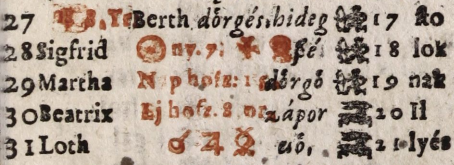 27 Berth dörgés. hideg 17 ko
28 Sigfrid 18 lok
29 Martha Nap hosz: dörgö 19 nak
30 Beatrix Ej hosz. 8. or. zápor 20 Il
31 Loth ♂ ♃ ☿ esö, 21 lyés